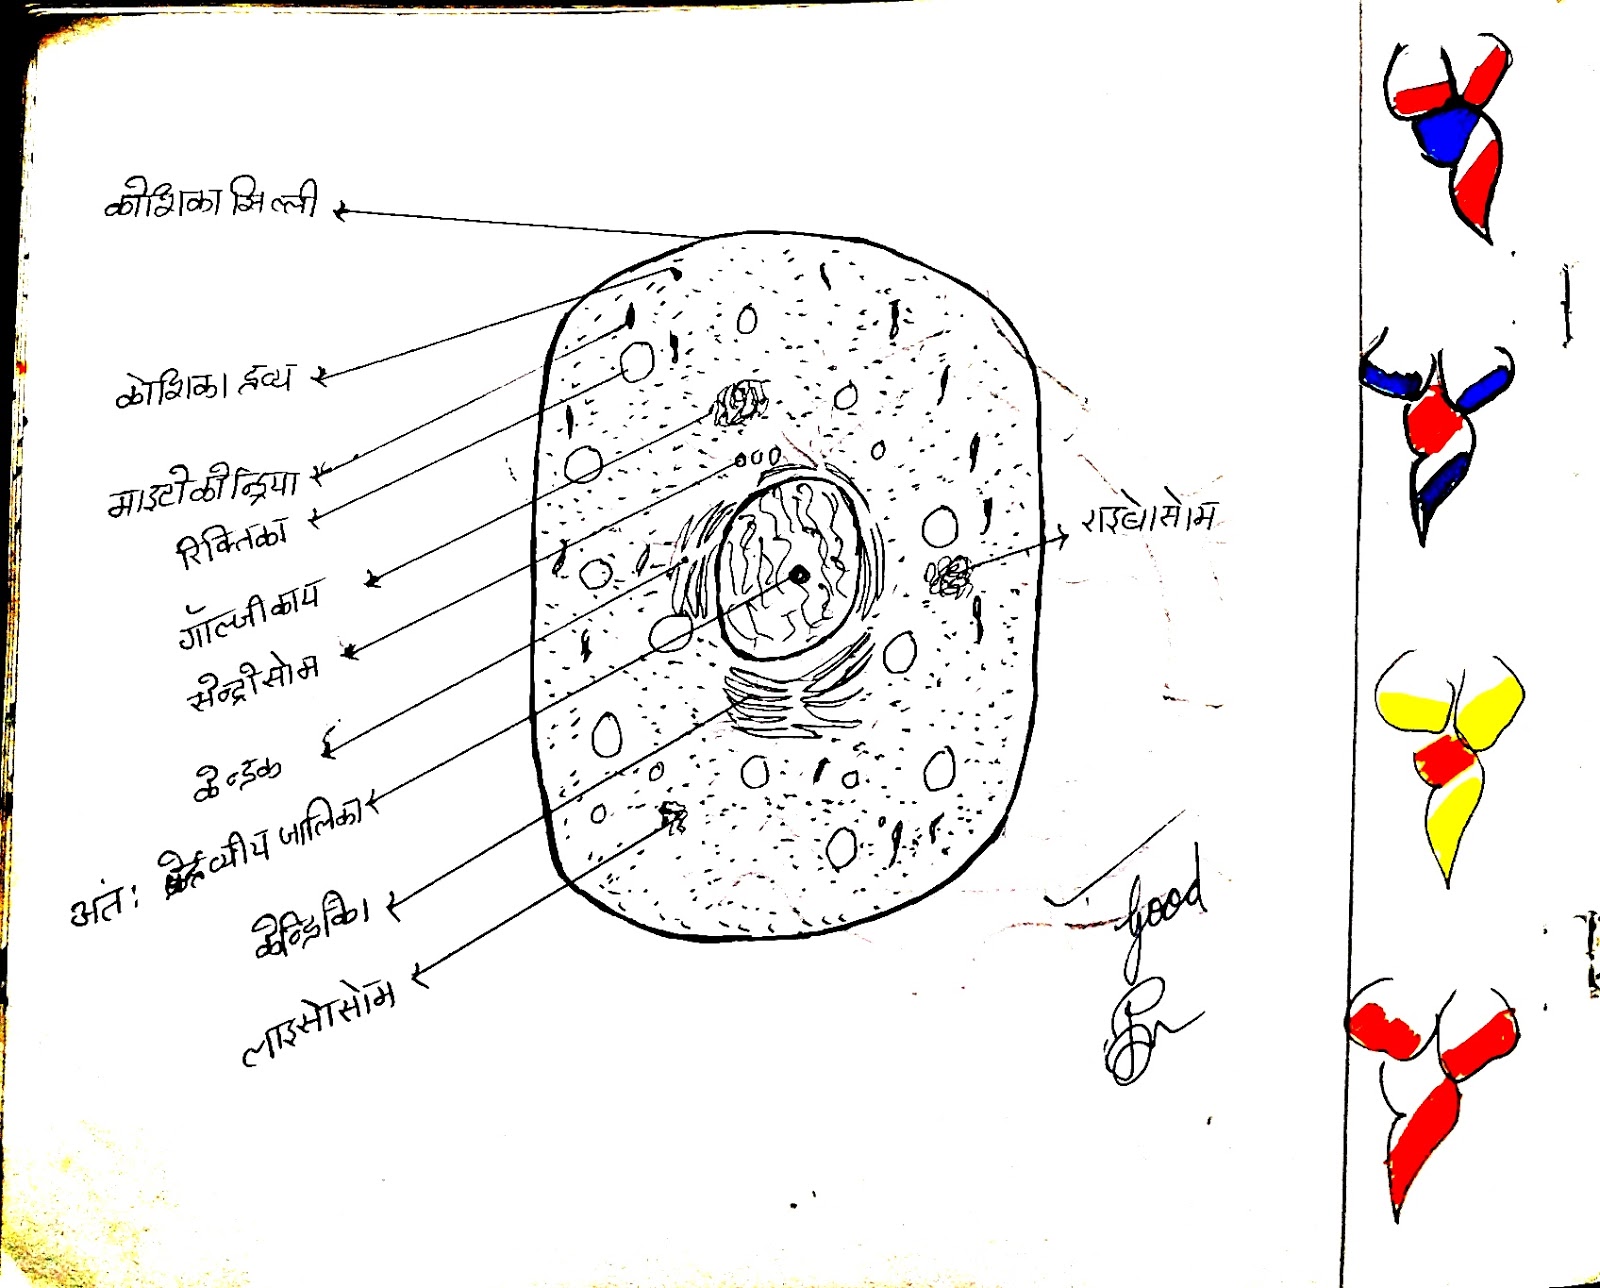 कोशिका झिल्ली
कोशिका द्रव्य
माइटोकोन्ड्रिया
रिक्तिका
गॉल्जीकाय
सेन्ट्रोसोम
केन्द्रक
अंतः र्द्रव्यीय जालिका
केन्द्रिका
लाइसोसोम
राइबोसोम
Good